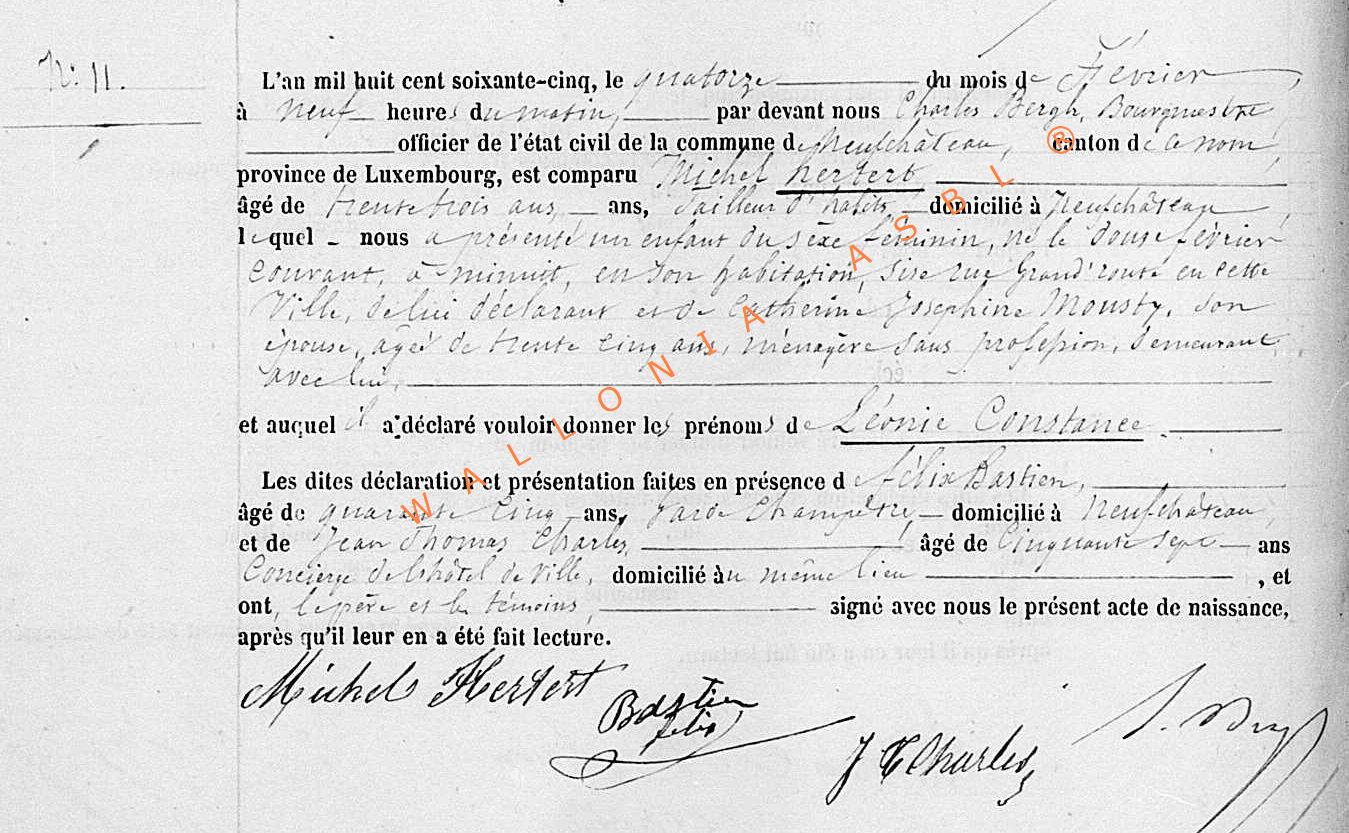 N° 11.
L'an mil huit cent soixante-cinq, le quatorze du mois de Février,
à neuf heures du matin, par devant nous Charles Bergh, Bourgmestre,
officier de l'état civil de la commune de Neufchâteau, canton de ce nom,
province de Luxembourg, est comparu Michel Hertert
âgé de trente trois ans ans, tailleur d'habits domicilié à Neufchâteau,
lequel nous a présenté un enfant du sexe féminin, né le douse février
courant, à minuit, en son habitation, sise rue Grand'route en cette
Ville, de lui déclarant et de Catherine Josephine Mousty, son
épouse, agée de trente cinq ans, ménagère sans profession, demeurant
avec lui,
et auquel il a déclaré vouloir donner les prénoms de Léonie Constance.
Les dites déclaration et présentation faites en présence de Félix Bastien,
âgé de quarante cinq ans, Garde Champêtre domicilié à Neufchâteau,
et de Jean Thomas Charles, âgé de Cinquante sept ans
Concierge de l'hôtel de Ville, domicilié au même lieu , et
ont, le père et les témoins signé avec nous le présent acte de naissance,
après qu'il leur en a été fait lecture.
Michel Hertert
Bastien
félix
J T Charles
WALLONIA ASBL ®